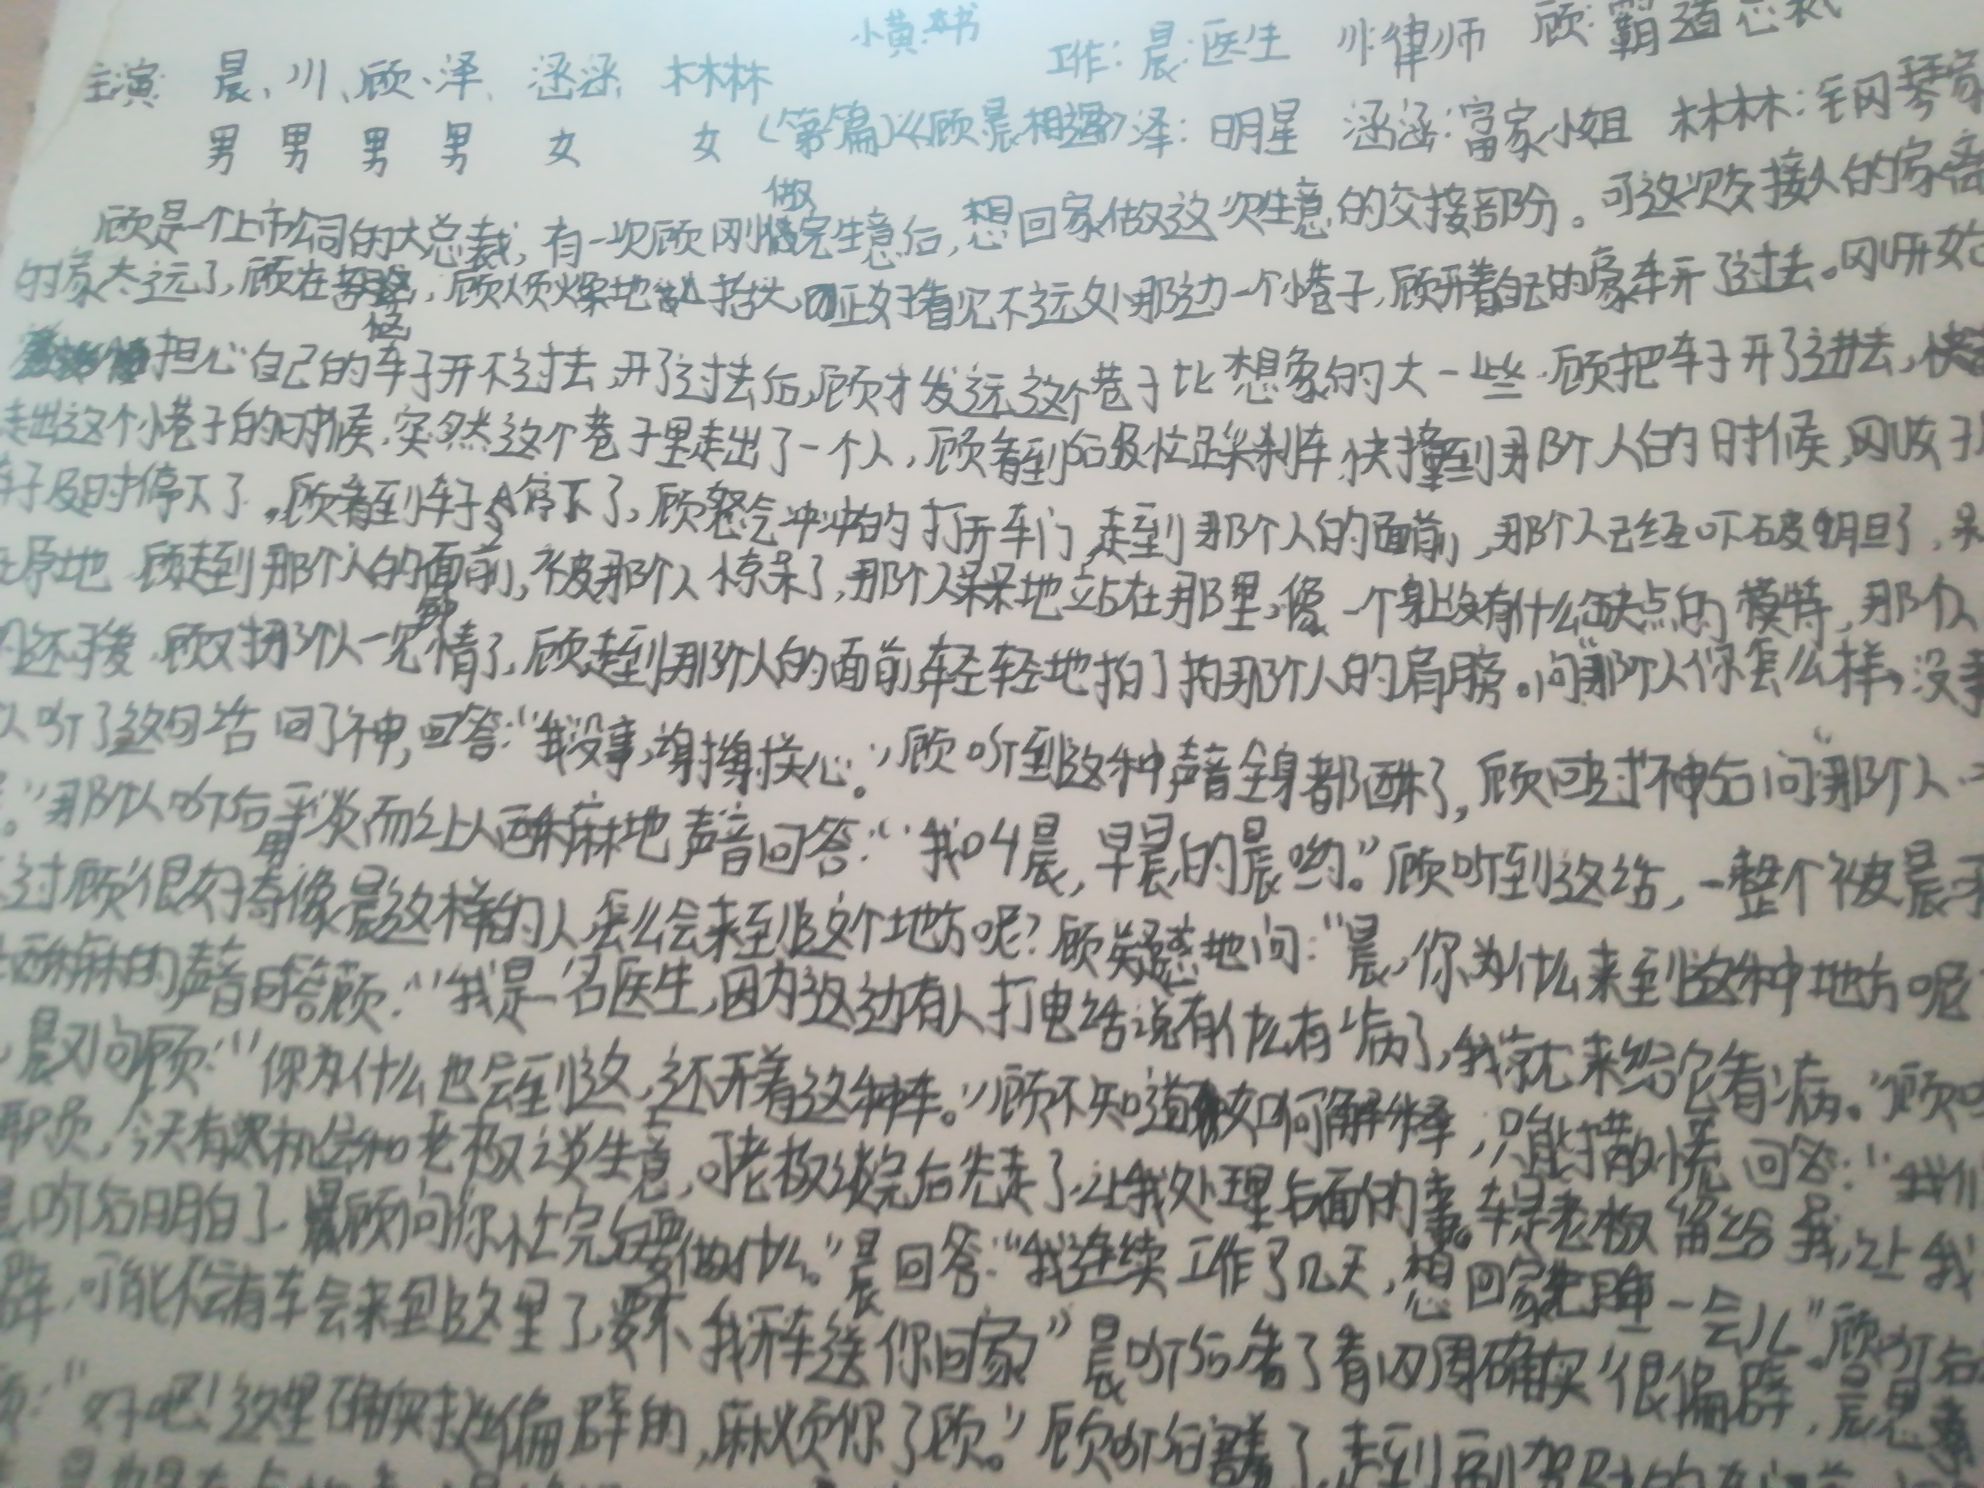 小黄书
主演: 晨、川、顾、泽、涵涵、林林 工作:晨:医生 川:律师 顾:霸道总裁
男 男 男 男 女 女 《顾晨相遇》泽:明星 涵涵:富家小姐 林林:钢琴家
顾是一个上市公司的大总裁,有一次顾刚做完生意后,想回家做这次生意的交接部分。可这次交接人的家离
的家太远了,顾在,顾烦燥地乱挠头,正好看见不远处那边一个小巷子,顾开着自己的豪车开了过去。刚开始
担心自己的车子开不过去,开了过去后,顾才发远这个巷子比想象的大一些,顾把车子开了进去,快
走出这个小巷子的时候,突然这个巷子里走出了一个人,顾看到后极忙踩刹车,快撞到那个人的时候,刚好
车子及时停下了。顾看到车子停下了,顾怒气冲冲的打开车门,走到那个人的面前,那个人已经吓破胆了,呆
在原地 顾走到那个人的面前,被那个人惊呆了,那个人呆呆地立占在那里,像一个身上没有什么缺点的模特,那个人
顾对那个人一见钟情了,顾走到那个人的面前,轻轻地拍了拍那个人的肩膀。问那个人“你怎么样,没事
人听了这句话回了神,回答:“我没事,谢谢关心。”顾听到这种声音全身都酥了,顾回过神后问那个人“
。”那个人听后用柔而让人酥麻地声音回答:“我叫晨,早晨的晨哟。”顾听到这话,一整个被晨
过顾很好奇像晨这样的人怎么会来到这个地方呢?顾疑惑地问:“晨,你为什么来到这种地方呢
酥麻的声音回答顾:“我是一名医生,因为这边有人打电话说有什么有病了,我就来给它看病。”顾
,晨又问顾:“你为什么也会到这,还开着这种车。”顾不知道如何解释,只能撒谎回答:“我们
职员,今天有次机会和老板谈生意,可老板谈完后先走了,让我处理后面的事。车是老板留给我,让我
晨听后明白了。顾问你忙完后要做什么。”晨回答:“我连续工作了几天,想回家先睡一会儿”顾听后
辟,可能不会有车会来到这里了,要不我开车送你回家”晨听后看了看四周确实很偏辟,晨思
:“好吧!这里确实挺偏辟的,麻烦你了顾。”顾听后,走到副驾驶的车门